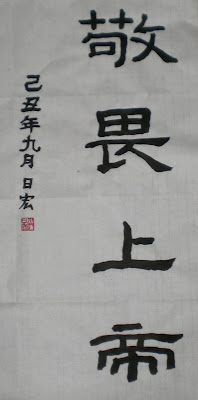 敬畏上帝
己丑年九月日宏